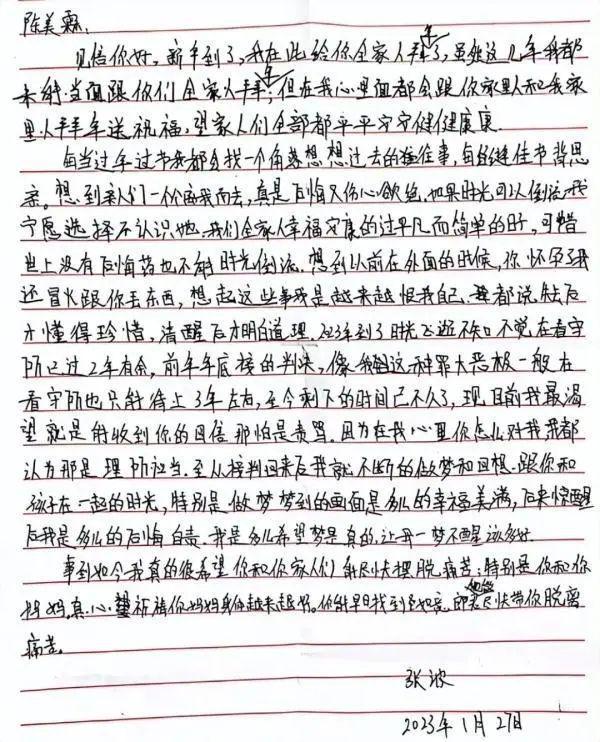 陈美霖:
见信你好,新年到了,我在此给你全家人拜年了,虽然这几年我都
未能当面跟你们全家人拜年,但在我心里面都会跟你家里人和我家
里人拜年送祝福,望家人们全部都平平安安健健康康.
每当过年过节我都会找一个角落想想过去的往事,每逢佳节倍思
亲.想到亲人们一个个离我而去,真是后悔又伤心欲绝,如果时光可以倒流我
宁愿选择不认识她.我们全家人幸福安康的过平凡而简单的日,可惜
世上没有后悔药也不能时光倒流.想到以前在外面的时候,你怀孕了我
还冒火跟你丢东西,想起这些事我是越来越恨我自己.都说,失后
才懂得珍惜,清醒后才明白道理.2023年到了时光飞逝不知不觉在看守
所已过2年有余,前年年底接的判决,像我这种罪大恶极一般在
看守所也只能待上3年左右,至今剩下的时间已不久了,现目前我最渴
望就是能收到你的回信那怕是责骂.因为在我心里你怎么对我我都
认为那是理所应当.至从接判回来后我就不断的做梦和回想.跟你和
孩子在一起的时光,特别是做梦梦到的画面是多么的幸福美满,后来惊醒
后我是多么的后悔自责.我是多么希望梦是真的,让我一梦不醒该多好.
事到如今我真的很希望你和你家人们能尽快摆脱痛苦,特别是你和你
妈妈.真心祈祷你妈妈身体越来越好.你能早日找到如意郎君尽快带你脱离
痛苦.
张波
2023年1月27日